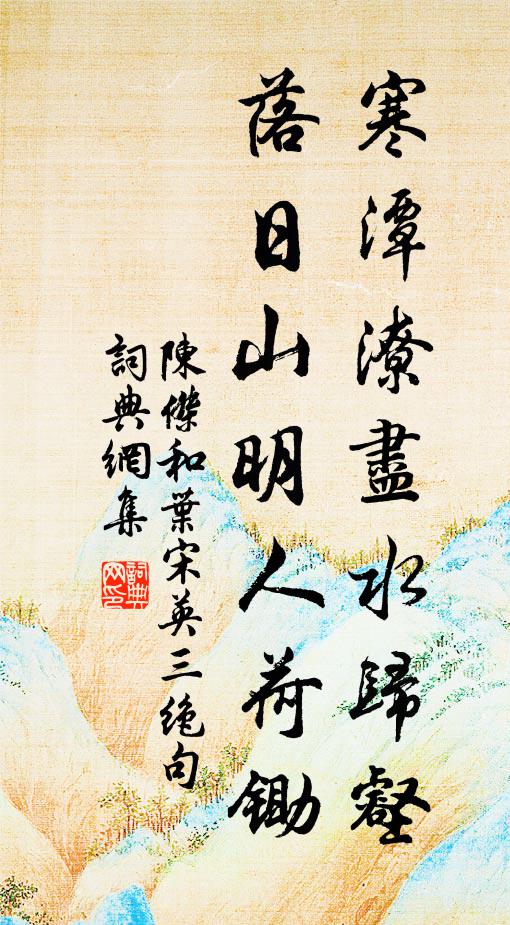 寒潭潦盡水歸壑
落日山明人荷鋤
陳傑和葉宋英三絶句
詞典網集
詞典網印